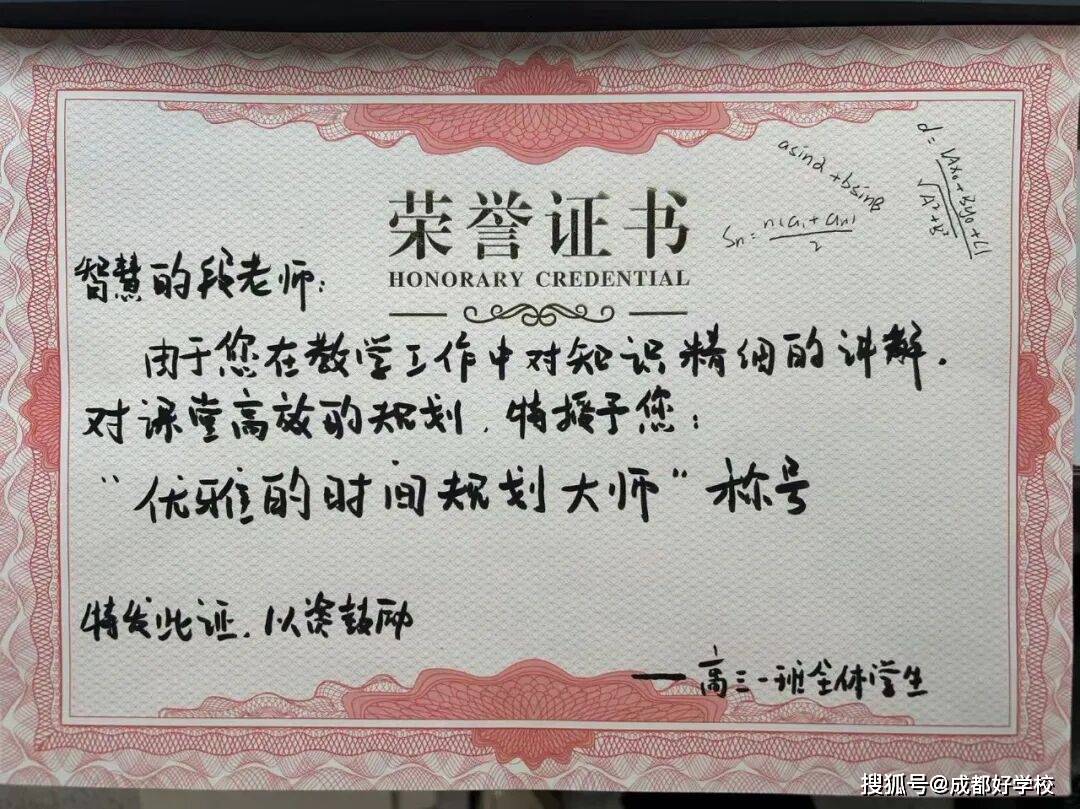 荣誉证书
HONORARY CREDENTIAL
asinα+bsinβ
Sn=n(a₁+an)/2
d=|Ax₀+By₀+C|/√A²+B²
智慧的段老师:
由于您在教学工作中对知识精细的讲解.
对课堂高效的规划.特授予您:
“优雅的时间规划大师”称号
特发此证.以资鼓励
——高三一班全体学生
搜狐号@成都好学校